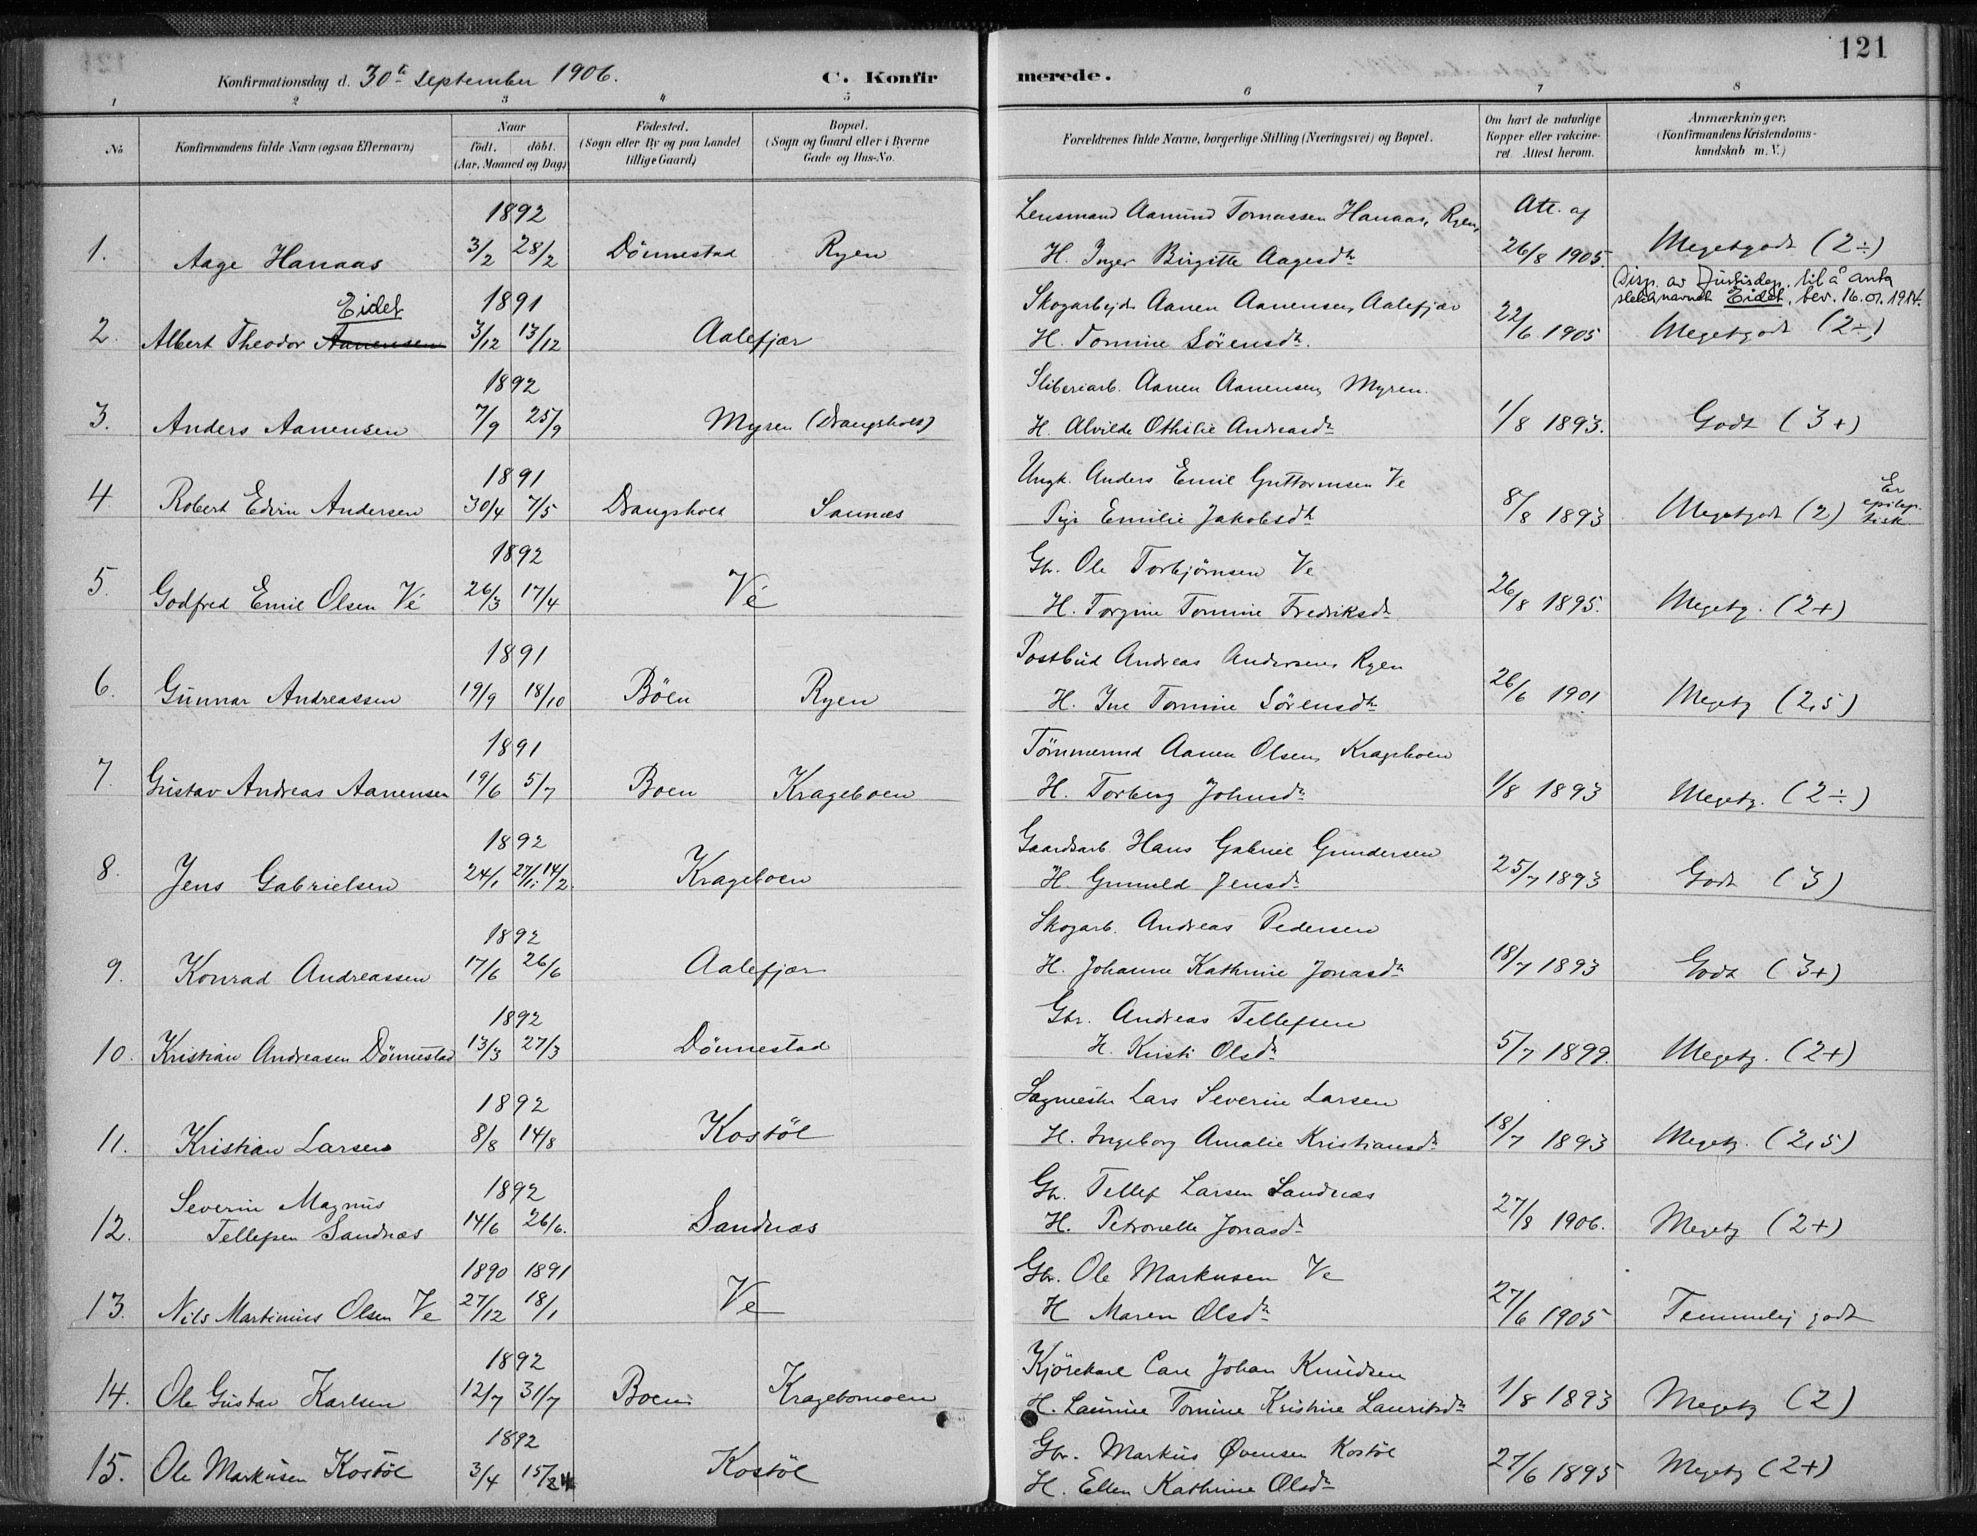 121
Konfirmationsdag d. 30te September 1906. C. Konfirmerede.
1 2 3 4 5 6 7 8
No. Konfirmandens fulde Navn (ogsaa Efternavn) Naar födt. döbt. (Aar, Maaned og Dag) Födested. (Sogn eller By og paa Landet tillige Gaard) Bopæl. (Sogn og Gaard eller i Byerne Gade og Hus-No. Forældrenes fulde Navne, borgerlige Stilling (Næringsvei) og Bopæl. Om havt de naturlige Kopper eller vaccineret. Attest herom. Anmærkninger. (Konfirmandens Kristendomskundskab m. V.)
1892 Lensmand Aamund Tomassen Hanaas, Ryen, Att. af
1. Aage Hanaas 3/2 28/2 Dönnestad Ryen H. Inger Birgitte Aagesdtr 26/8 1905. Megetgodt (2÷)
Eidet 1891 Skogarbejdr Aanen Aanensen, Aalefjær Disp. av Justisdep. til å anta slektsnavnet Eidet, bev. 16.01.1914.
2. Albert Theodor Aanensen 3/12 13/12 Aalefjær H. Tomine Sörensdtr. 22/6 1905 Megetgodt (2÷)
1892 Sliberiarb. Aanen Aanensen, Myren.
3. Anders Aanensen 7/9 25/9 Myren (Drangsholt) H. Alvilde Othilie Andreasdtr 1/8 1893. Godt (3+)
1891 Ungk. Anders Emil Guttormsen Ve
4. Robert Edvin Andersen 30/4 7/5 Drangsholt Sannæs Pige Emilie Jakobsdtr 8/8 1893 Megetgodt (2) Er epileptisk
1892 Gbr. Ole Torbjörnsen Ve
5. Godfred Emil Olsen Ve 26/3 17/4 Ve H. Torgine Tomine Fredriksdtr 26/8 1895. Megetg. (2+)
1891 Postbud Andreas Andersen, Ryen
6. Gunnar Andreassen 19/9 18/10 Böen Ryen H. Ine Tomine Sörensdtr 26/6 1901 Megetg (2,5)
1891 Tömmermd Aanen Olsen, Krageboen
7. Gustav Andreas Aanensen 19/6 5/7 Boen Krageboen H. Torberg Johnsdtr 1/8 1893 Megetg. (2÷)
1892 Gaardsarb. Hans Gabriel Gundersen
8. Jens Gabrielsen 24/1 14/2. Krageboen H. Gunuld Jensdtr 25/7 1893 Godt (3)
1892 Skogarb. Andreas Pedersen
9. Konrad Andreassen 17/6 26/6 Aalefjær H. Johanne Kathrine Jonasdtr 18/7 1893 Godt (3+)
1892 Gbr. Andreas Tellefsen
10. Kristian Andreasen Dönnestad 13/3 27/3 Dönnestad H. Kirsti Olsdtr 5/7 1899. Megetg. (2+)
1892 Sagmestr Lars Severin Larsen
11. Kristian Larsen 8/8 14/8 Kostöl H. Ingeborg Amalie Kristiansdtr 18/7 1893 Megetg. (2,5)
Severin Magnus 1892 Gbr. Tellef Larsen Sandnæs
12. Tellefsen Sandnæs 14/6 26/6. Sandnæs H. Petronelle Jonasdtr 27/8 1906. Megetg (2+)
1890 1891 Gbr. Ole Markusen Ve
13. Nils Martinius Olsen Ve 27/12 18/1 Ve H Maren Olsdtr 27/6 1905 Temmelig godt
1892 Kjörekarl Carl Johan Knudsen
14. Ole Gustav Karlsen 12/7 31/7 Boen Kragebomoen H. Laurine Tomine Kristine Lauritsdtr 1/8 1893 Megetg (2)
1892 Gbr. Markus Övensen Kostöl
15. Ole Markusen Kostöl 3/4 Kostöl H. Ellen Kathrine Olsdtr 27/6 1895 Megetg (2+)